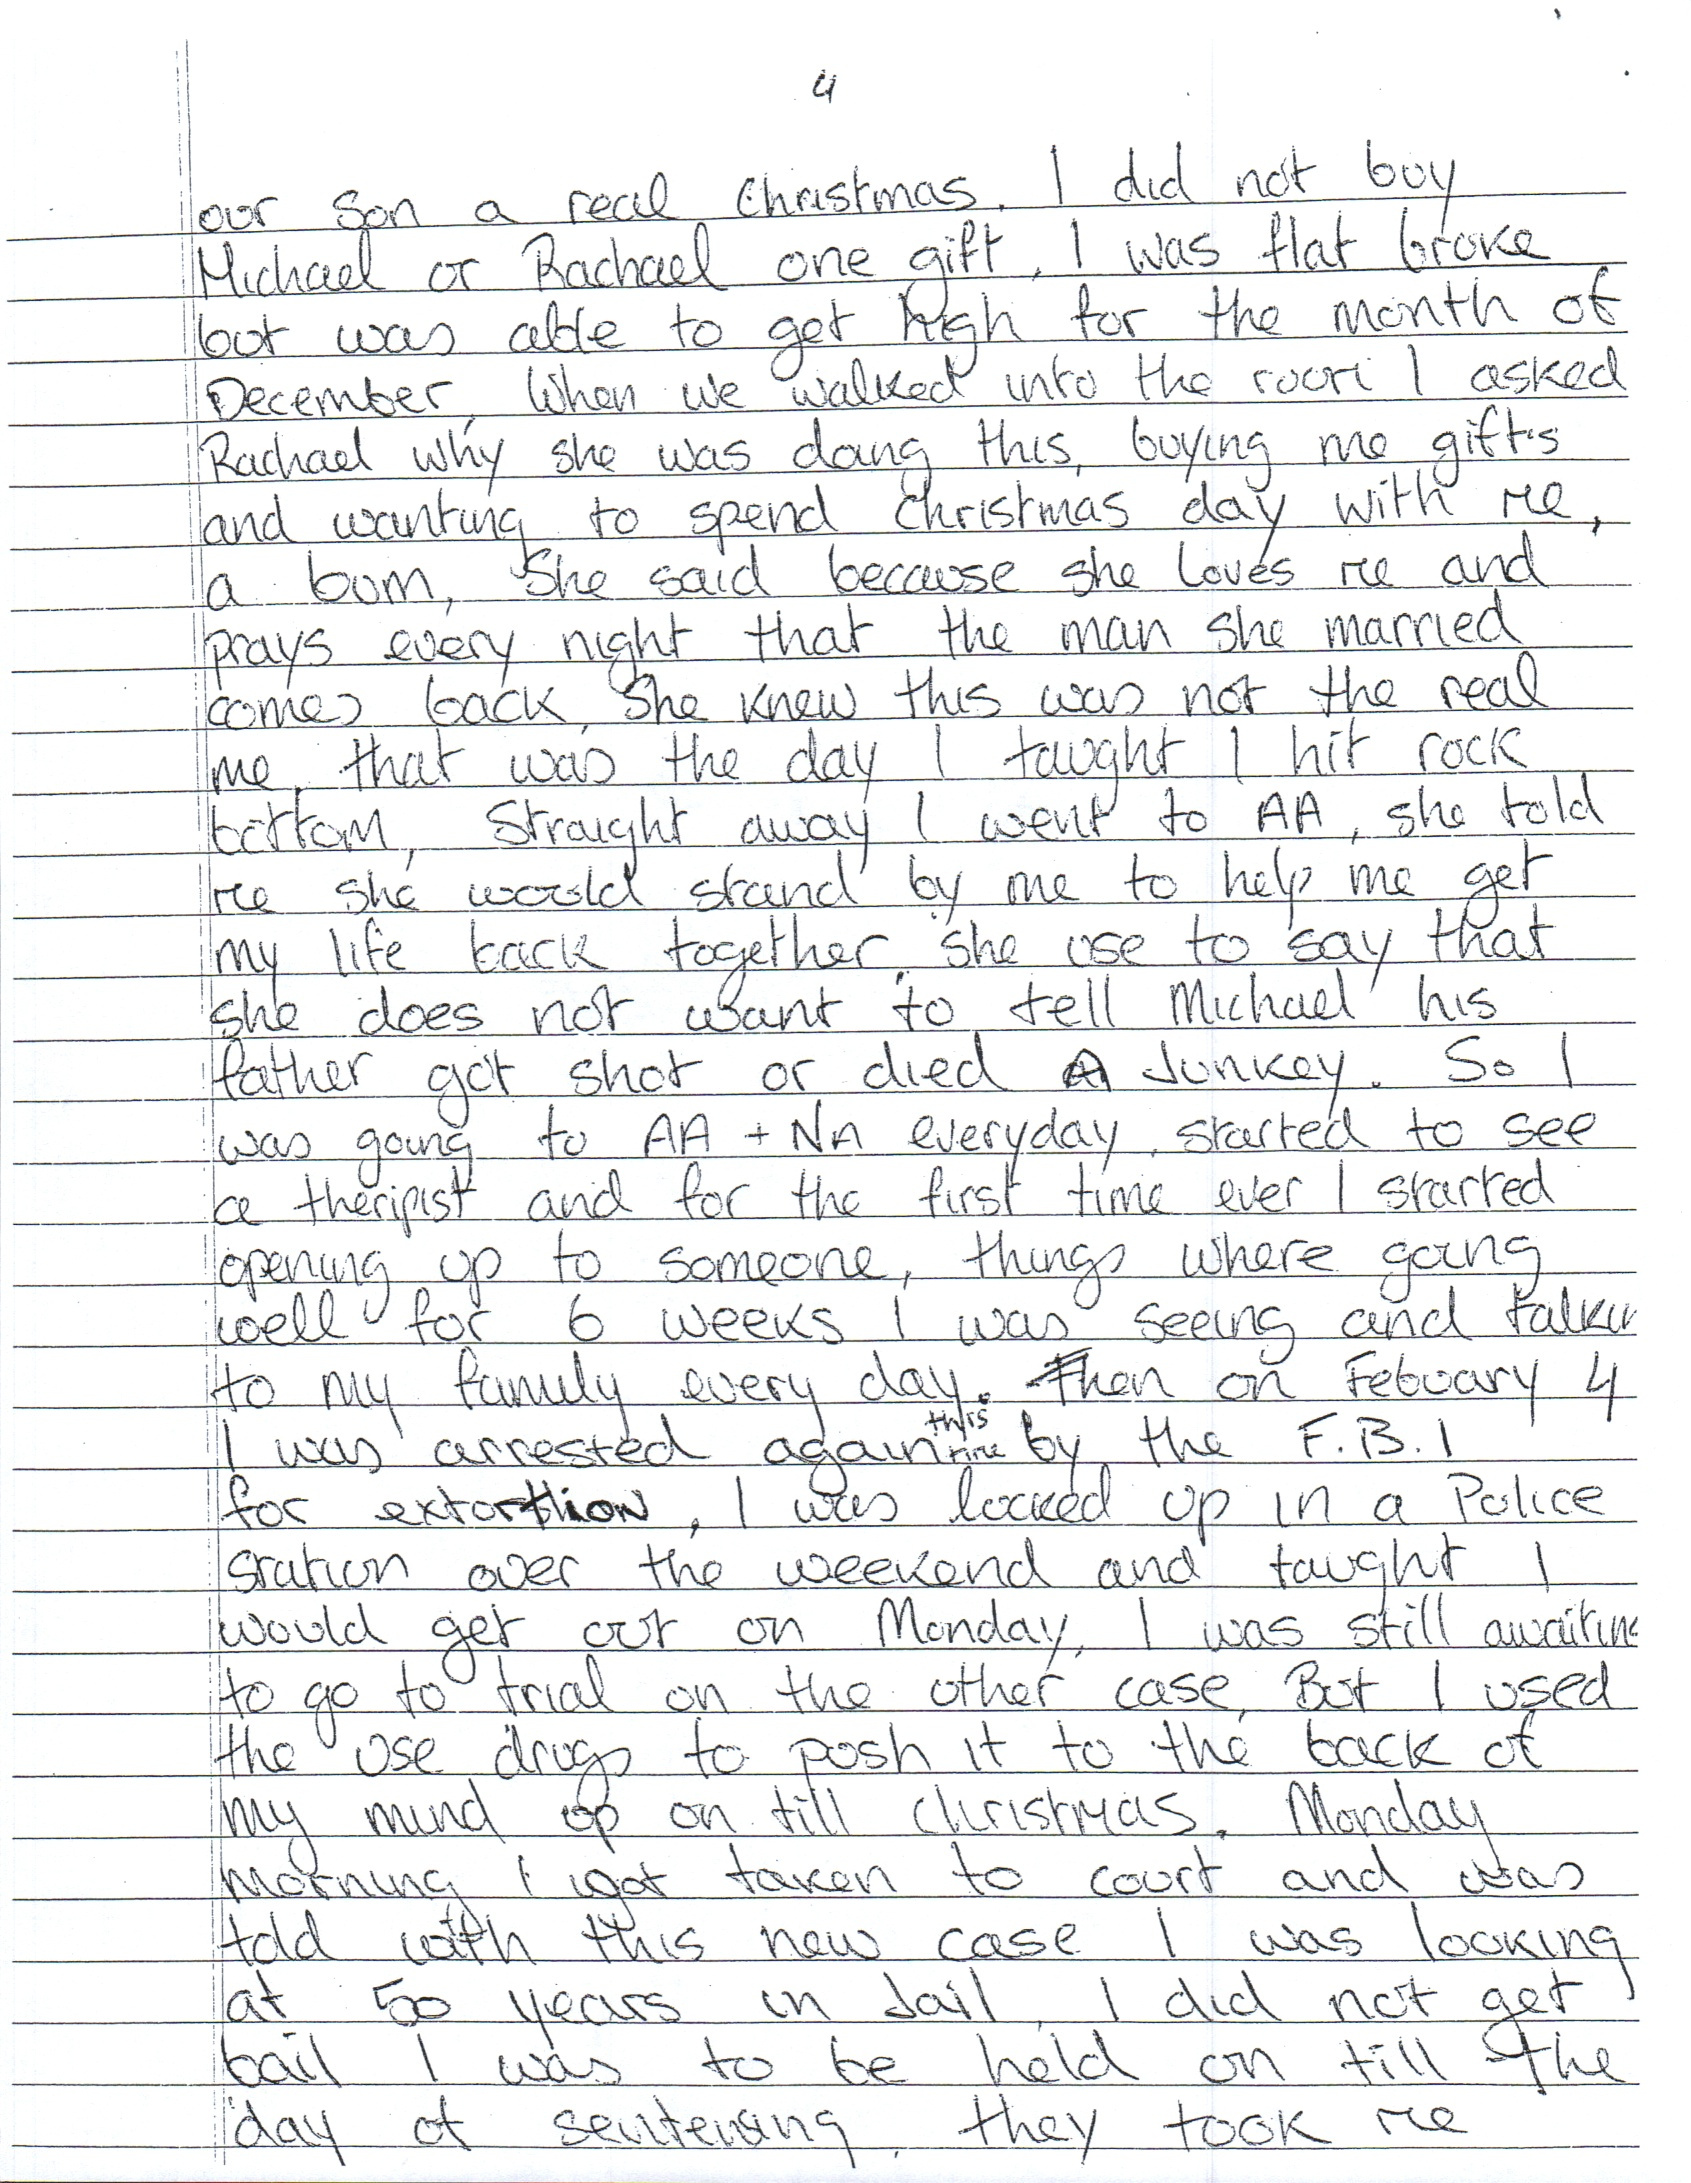 4
our son a real Christmas. I did not buy
Michael or Rachael one gift, I was flat broke
but was able to get high for the month of
December, When we walked into the room I asked
Rachael why she was doing this, buying me gifts
and wanting to spend Christmas day with me,
a bum, She said because she loves me and
prays every night that the man she married
comes back, She knew this was not the real
me, that was the day I taught I hit rock
bottom, Straight away I went to AA, she told
me she would stand by me to help me get
my life back together, she use to say that
she does not want to tell Michael his
father got shot or died A Junkey. So I
was going to AA + NA everyday, started to see
a theripist and for the first time ever I started
opening up to someone, things where going
well for 6 weeks I was seeing and talkin
to my family every day. Then on Febuary 4
I was arrested again this time by the F.B.I
for extorthion, I was locked up in a Police
station over the weekend and taught I
would get out on Monday, I was still awaiting
to go to trial on the other case, But I used
the use drugs to push it to the back of
my mind up on till Christmas. Monday
morning I got taken to court and was
told with this new case I was looking
at 50 years in Jail, I did not get
bail I was to be held on till the
day of sentensing, they took me